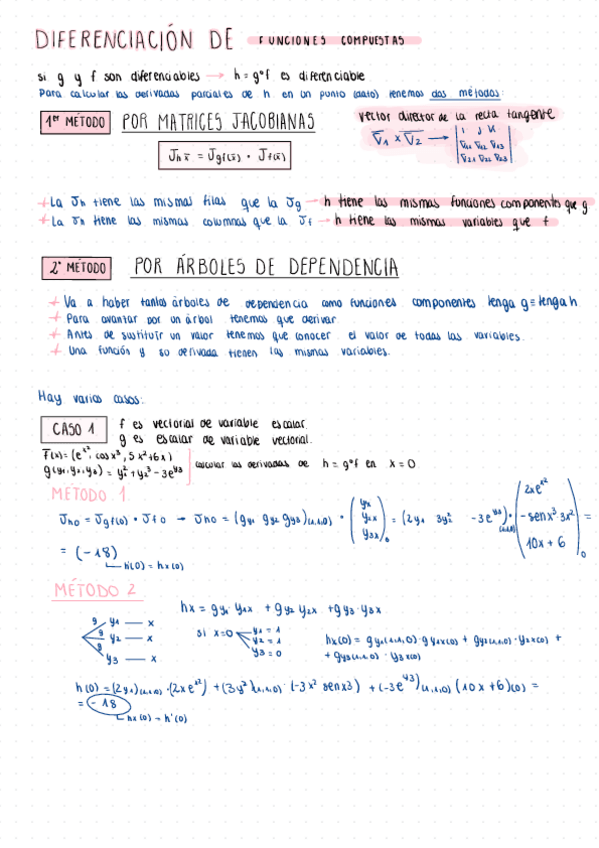 DIFERENCIACIÓN DE FUNCIONES COMPUESTAS
si g y f son diferenciables → h = g∘f es diferenciable
Para calcular las derivadas parciales de h en un punto (dato) tenemos dos métodos:
1er MÉTODO POR MATRICES JACOBIANAS
Jh x̄ = Jg f(x̄) · Jf(x̄)
vector director de la recta tangente
V̄1 x V̄2 → | i j k
V11 V12 V13
V21 V22 V23 |
+ La Jh tiene las mismas filas que la Jg → h tiene las mismas funciones componentes que g
+ La Jh tiene las mismas columnas que la Jf → h tiene las mismas variables que f
2° MÉTODO POR ÁRBOLES DE DEPENDENCIA
+ Va a haber tantos árboles de dependencia como funciones componentes tenga g = tenga h
+ Para avanzar por un árbol tenemos que derivar.
+ Antes de sustituir un valor tenemos que conocer el valor de todas las variables.
+ Una función y su derivada tienen las mismas variables.
Hay varios casos:
CASO 1 f es vectorial de variable escalar.
g es escalar de variable vectorial.
F(x) = (e^x², cos x³, 5x²+6x)
g(y1, y2, y3) = y1² + y2³ - 3e^y3
calcular las derivadas de h = g∘f en x = 0
MÉTODO 1.
Jh0 = Jg f(0) · Jf0 → Jh0 = (gy1 gy2 gy3)(1,1,0) · (y1x y2x y3x)0 = (2y1 3y2² -3e^y3)(1,1,0) · (2xe^x² -sen x³·3x² 10x + 6)0 =
= (-18)
h'(0) = hx(0)
MÉTODO 2
g y1 — x
g y2 — x
g y3 — x
hx = gy1 · y1x + gy2 y2x + gy3 · y3x
si x=0 y1 = 1
y2 = 1
y3 = 0
hx(0) = gy1(1,1,0) · y1x(0) + gy2(1,1,0) · y2x(0) +
+ gy3(1,1,0) · y3x(0)
h(0) = (2y1)(1,1,0) · (2xe^x²) + (3y²)(1,1,0) · (-3x² sen x3) + (-3e^y3)(1,1,0) (10x + 6)(0) =
= -18
hx(0) = h'(0)